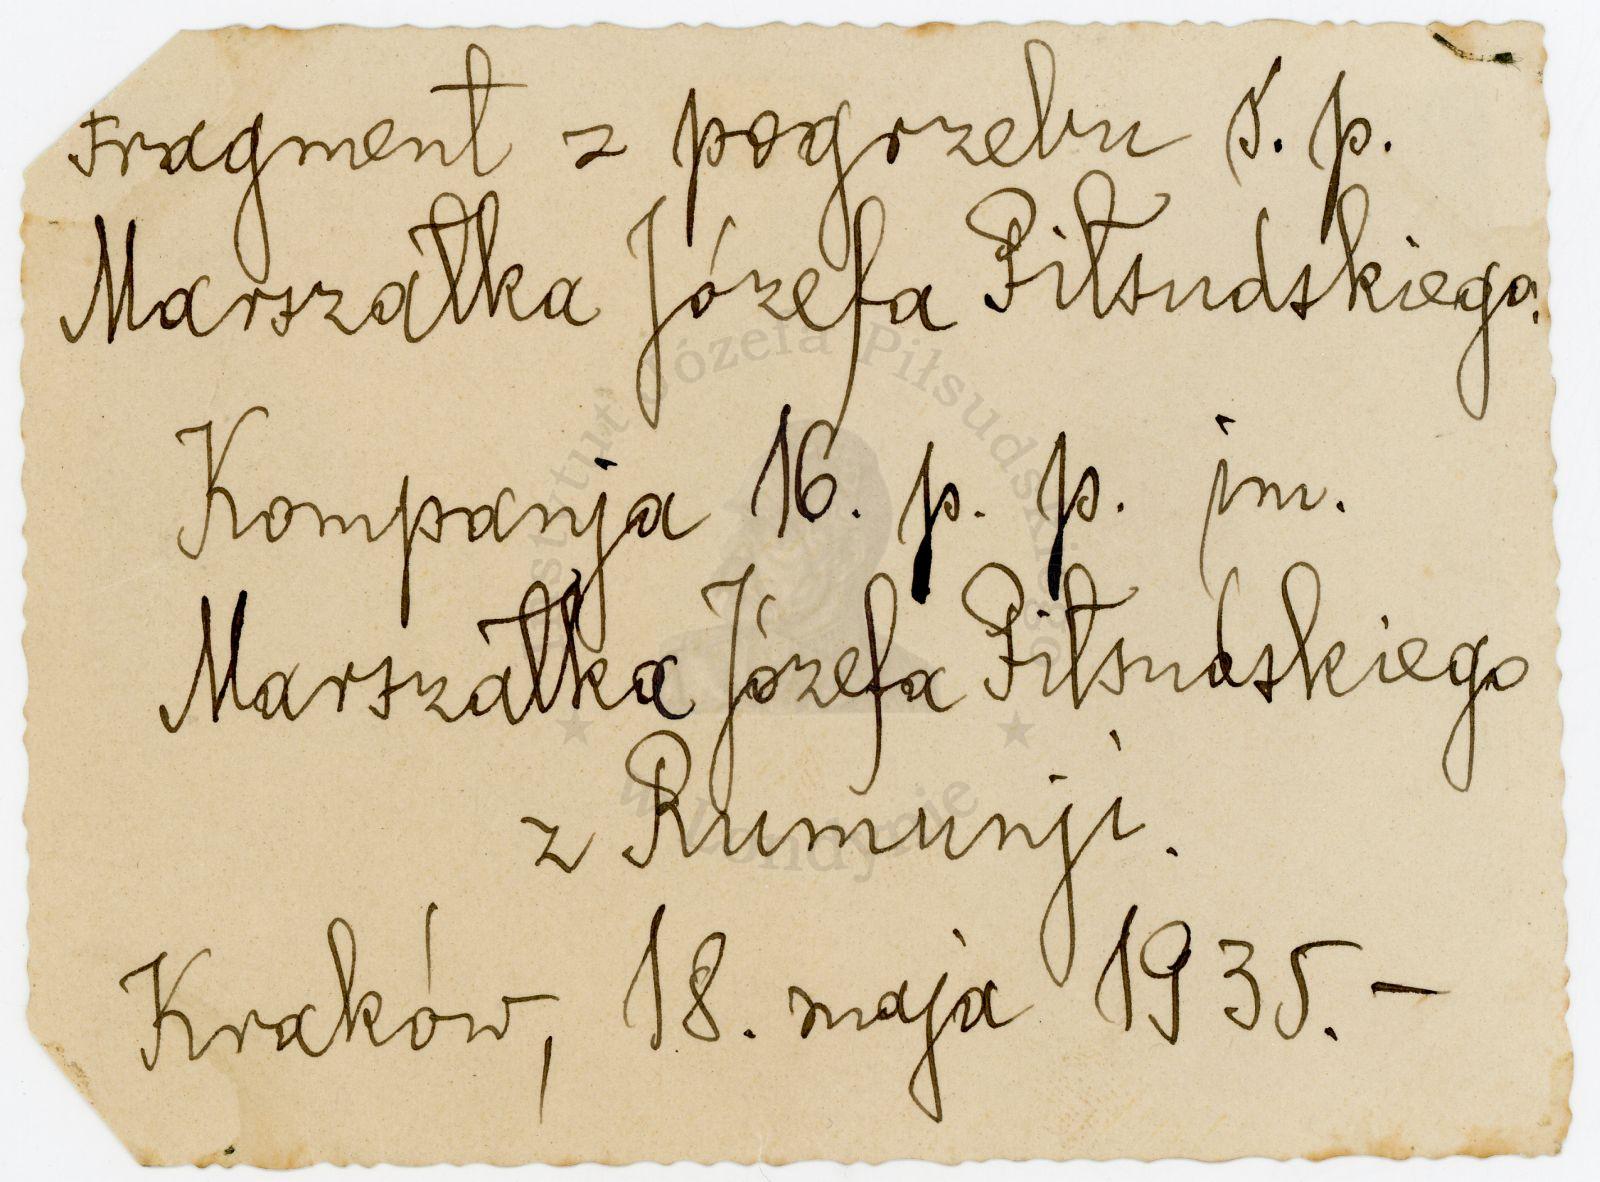 Fragment z pogrzebu ś.p.
Marszałka Józefa Piłsudskiego.
Kompanja 16. p. p. im.
Marszałka Józefa Piłsudskiego
z Rumunji.
Kraków, 18. maja 1935.—
Instytut Józefa Piłsudskiego
w Londynie